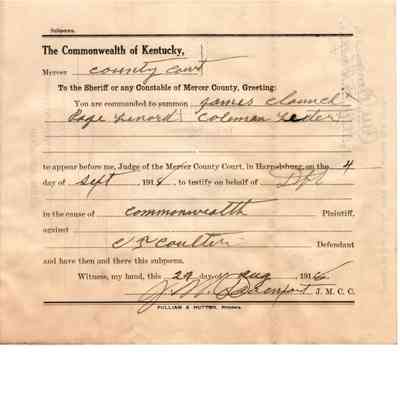 Subpœna.
The Commonwealth of Kentucky,
Mercer county court
To the Sheriff or any Constable of Mercer County, Greeting:
You are commanded to summon James Claunch
Page Lenord Coleman Lester
to appear before me, Judge of the Mercer County Court, in Harrodsburg, on the 4
day of Sept 1914, to testify on behalf of Dft
in the cause of commonwealth Plaintiff,
against
C F Coulter Defendant
and have then and there this subpœna.
Witness, my hand, this 29 day of Aug , 1914
J. W. Davenport J. M. C. C.
PULLIAM & NUTTER, Printers.